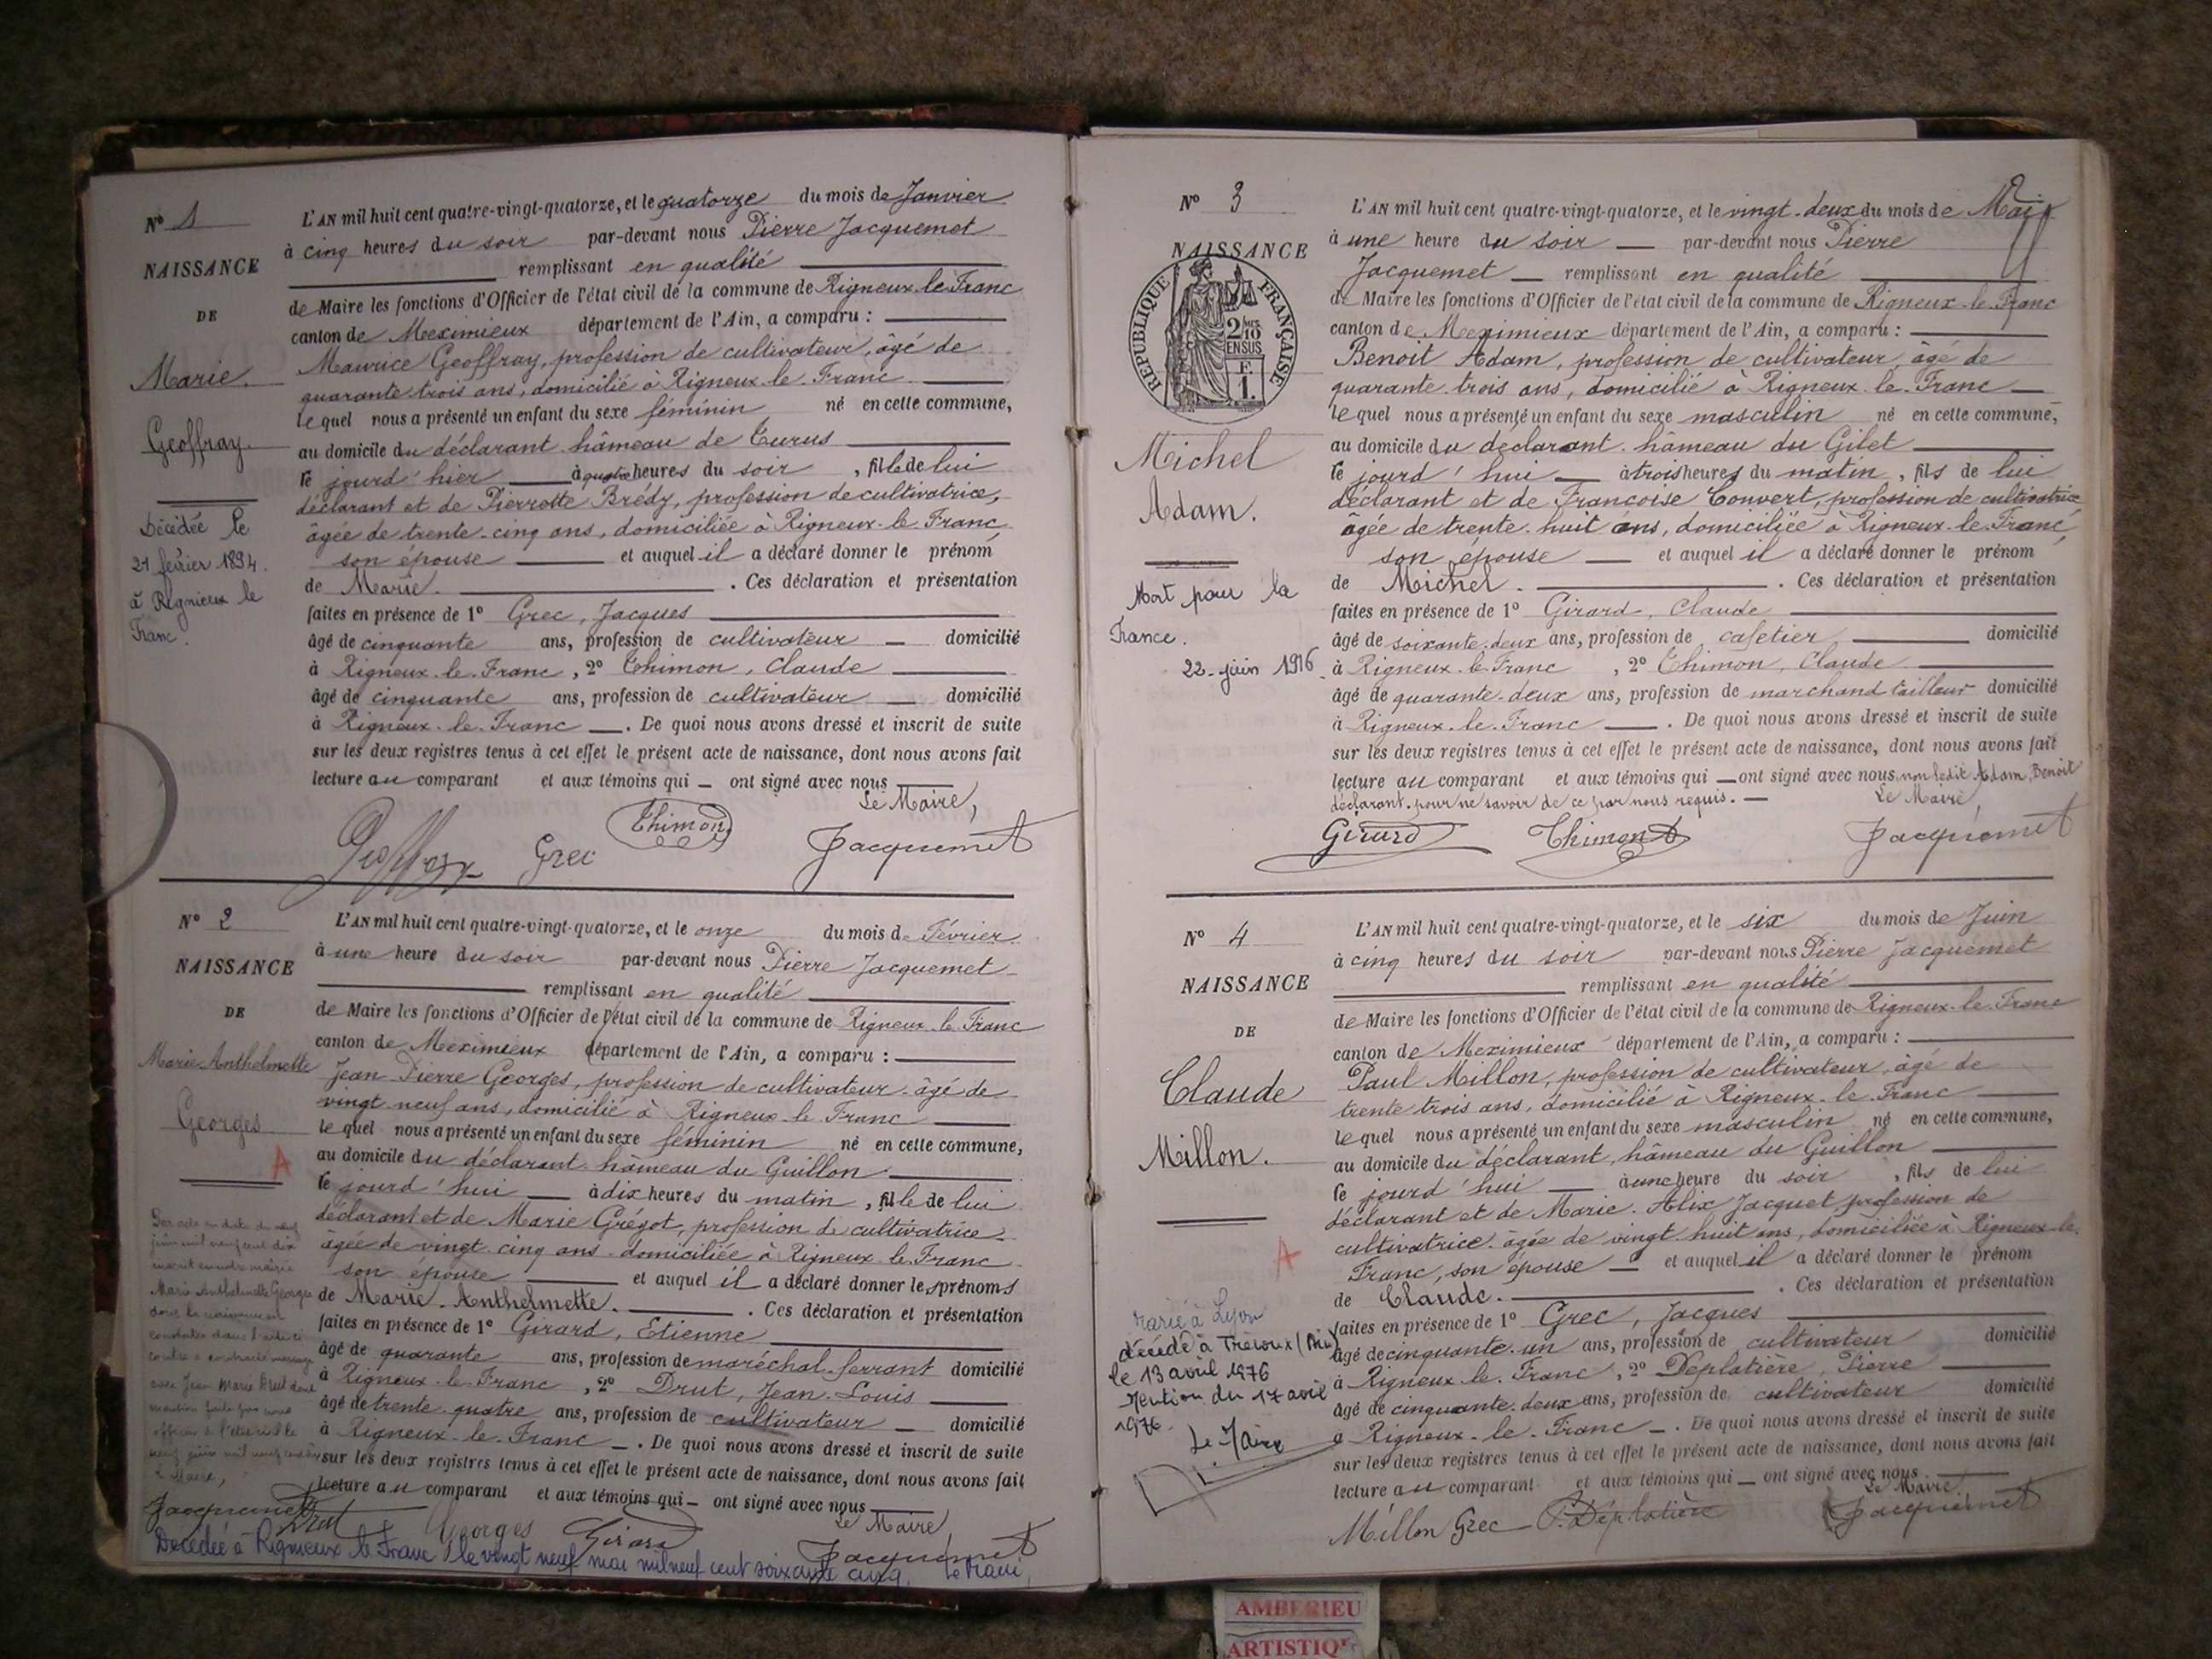 N° 1
NAISSANCE
DE
Marie
Geoffray.
Décédée le
21 février 1894.
à Rignieux le
Franc.
L'AN mil huit cent quatre-vingt-quatorze, et le quatorze du mois de Janvier
à cinq heures du soir par-devant nous Pierre Jacquemet
remplissant en qualité
de Maire les fonctions d'Officier de l'état civil de la commune de Rigneux-le-Franc
canton de Meximieux département de l'Ain, a comparu :
Maurice Geoffray, profession de cultivateur, âgé de
quarante trois ans, domicilié à Rigneux-le-Franc
lequel nous a présenté un enfant du sexe féminin né en cette commune,
au domicile du déclarant hâmeau de Turus
le jourd'hier à quatre heures du soir, fille de lui
déclarant et de Pierrotte Brédy, profession de cultivatrice,
âgée de trente-cinq ans, domiciliée à Rigneux-le-Franc
son épouse et auquel il a déclaré donner le prénom
de Marie. . Ces déclaration et présentation
faites en présence de 1° Grec, Jacques
âgé de cinquante ans, profession de cultivateur domicilié
à Rigneux-le-Franc, 2° Thimon, Claude
âgé de cinquante ans, profession de cultivateur domicilié
à Rigneux-le-Franc. De quoi nous avons dressé et inscrit de suite
sur les deux registres tenus à cet effet le présent acte de naissance, dont nous avons fait
lecture au comparant et aux témoins qui ont signé avec nous
Le Maire,
Geoffray Grec Thimon Jacquemet
N° 2
NAISSANCE
DE
Marie-Anthelmette
Georges
A
Par acte en date du neuf
juin mil neuf cent dix
inscrit en notre mairie
Marie Anthelmette Georges
dont la naissance est
constatée dans l'acte ci
contre a contracté mariage
avec Jean Marie Drut dont
mention faite par nous
officier de l'état civil le
neuf juin mil neuf cent dix
Le Maire,
Jacquemet
L'AN mil huit cent quatre-vingt-quatorze, et le onze du mois de Février
à une heure du soir par-devant nous Pierre Jacquemet
remplissant en qualité
de Maire les fonctions d'Officier de l'état civil de la commune de Rigneux-le-Franc
canton de Meximieux département de l'Ain, a comparu :
Jean-Pierre Georges, profession de cultivateur âgé de
vingt-neuf ans, domicilié à Rigneux-le-Franc
lequel nous a présenté un enfant du sexe féminin né en cette commune,
au domicile du déclarant hâmeau du Guillon
le jourd'hui à dix heures du matin, fille de lui
déclarant et de Marie Grégot, profession de cultivatrice
âgée de vingt-cinq ans domiciliée à Rigneux-le-Franc
son épouse et auquel il a déclaré donner les prénoms
de Marie-Anthelmette. . Ces déclaration et présentation
faites en présence de 1° Girard, Etienne
âgé de quarante ans, profession de maréchal-ferrant domicilié
à Rigneux-le-Franc, 2° Drut, Jean-Louis
âgé de trente-quatre ans, profession de cultivateur domicilié
à Rigneux-le-Franc. De quoi nous avons dressé et inscrit de suite
sur les deux registres tenus à cet effet le présent acte de naissance, dont nous avons fait
lecture au comparant et aux témoins qui ont signé avec nous
Le Maire
Drut Georges Girard Jacquemet
Décédée à Rignieux le Franc le vingt neuf mai mil neuf cent soixante cinq. Le Maire,
N° 3
NAISSANCE
RÉPUBLIQUE FRANÇAISE
2/10
EN SUS
F.
1.
Michel
Adam.
Mort pour la
France.
22-juin 1916.
L'AN mil huit cent quatre-vingt-quatorze, et le vingt-deux du mois de Mai
à une heure du soir par-devant nous Pierre
Jacquemet remplissant en qualité
de Maire les fonctions d'Officier de l'état civil de la commune de Rigneux-le-Franc
canton de Meximieux département de l'Ain, a comparu :
Benoit Adam, profession de cultivateur âgé de
quarante-trois ans, domicilié à Rigneux-le-Franc
lequel nous a présenté un enfant du sexe masculin né en cette commune,
au domicile du déclarant hâmeau du Gilet
le jourd'hui à trois heures du matin, fils de lui
déclarant et de Françoise Convert, profession de cultivatrice
âgée de trente-huit ans, domiciliée à Rigneux-le-Franc,
son épouse et auquel il a déclaré donner le prénom
de Michel. . Ces déclaration et présentation
faites en présence de 1° Girard, Claude
âgé de soixante-deux ans, profession de cafetier, domicilié
à Rigneux-le-Franc, 2° Thimon, Claude
âgé de quarante-deux ans, profession de marchand tailleur domicilié
à Rigneux-le-Franc. De quoi nous avons dressé et inscrit de suite
sur les deux registres tenus à cet effet le présent acte de naissance, dont nous avons fait
lecture au comparant et aux témoins qui ont signé avec nous, non ledit Adam, Benoit
déclarant, pour ne savoir de ce par nous requis.
Le Maire,
Girard Thimon Jacquemet
N° 4
NAISSANCE
DE
Claude
Millon.
A
Marié à Lyon
décédé à Trévoux (Ain)
le 13 avril 1976
Mention du 17 avril
1976.
Le Maire
L'AN mil huit cent quatre-vingt-quatorze, et le six du mois de Juin
à cinq heures du soir par-devant nous Pierre Jacquemet
remplissant en qualité
de Maire les fonctions d'Officier de l'état civil de la commune de Rigneux-le-Franc
canton de Meximieux département de l'Ain, a comparu :
Paul Millon, profession de cultivateur, âgé de
trente trois ans, domicilié à Rigneux-le-Franc
lequel nous a présenté un enfant du sexe masculin né en cette commune,
au domicile du déclarant, hâmeau du Guillon
le jourd'hui à une heure du soir, fils de lui
déclarant et de Marie-Alix Jacquet profession de
cultivatrice âgée de vingt huit ans, domiciliée à Rigneux-le-
Franc, son épouse et auquel il a déclaré donner le prénom
de Claude. . Ces déclaration et présentation
faites en présence de 1° Grec, Jacques
âgé de cinquante-un ans, profession de cultivateur domicilié
à Rigneux-le-Franc, 2° Déplatière, Pierre
âgé de cinquante-deux ans, profession de cultivateur domicilié
à Rigneux-le-Franc. De quoi nous avons dressé et inscrit de suite
sur les deux registres tenus à cet effet le présent acte de naissance, dont nous avons fait
lecture au comparant et aux témoins qui ont signé avec nous
Le Maire
Millon Grec P. Déplatière Jacquemet
AMBERIEU
ARTISTIQUE